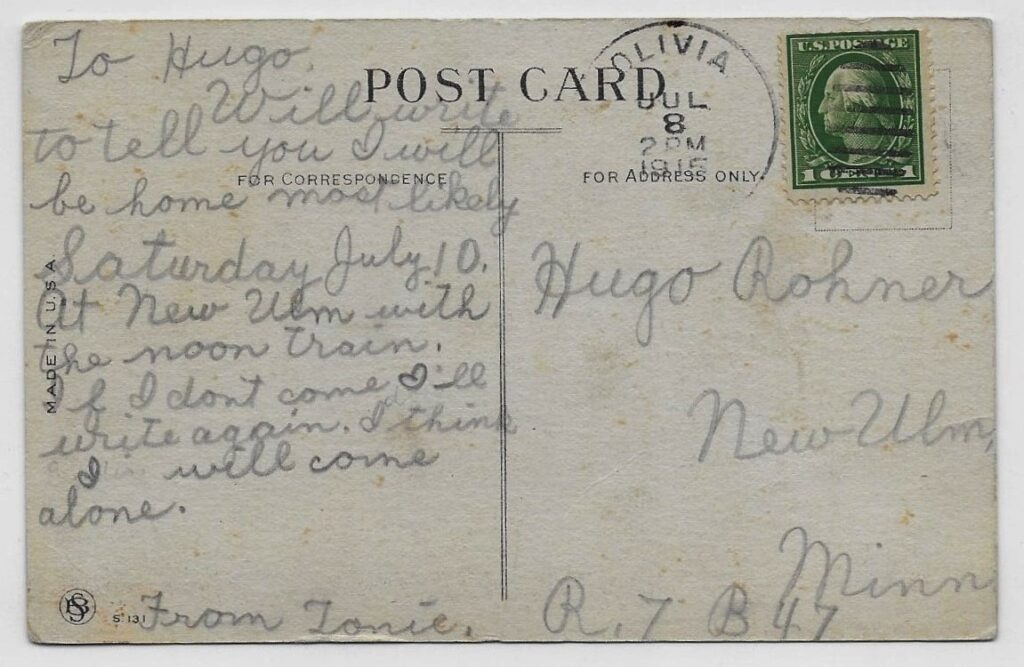 To Hugo.
Will write
to tell you I will
be home most likely
Saturday July 10.
At New Ulm with
the noon train.
If I dont come I'll
write again. I think
I will come
alone.
From Tonie.
POST CARD
FOR CORRESPONDENCE
FOR ADDRESS ONLY
MADE IN U.S.A
S 131
OLIVIA
JUL
8
2 PM
1915
U.S. POSTAGE
1
Hugo Rohner
New Ulm,
Minn
R. 7 B 47